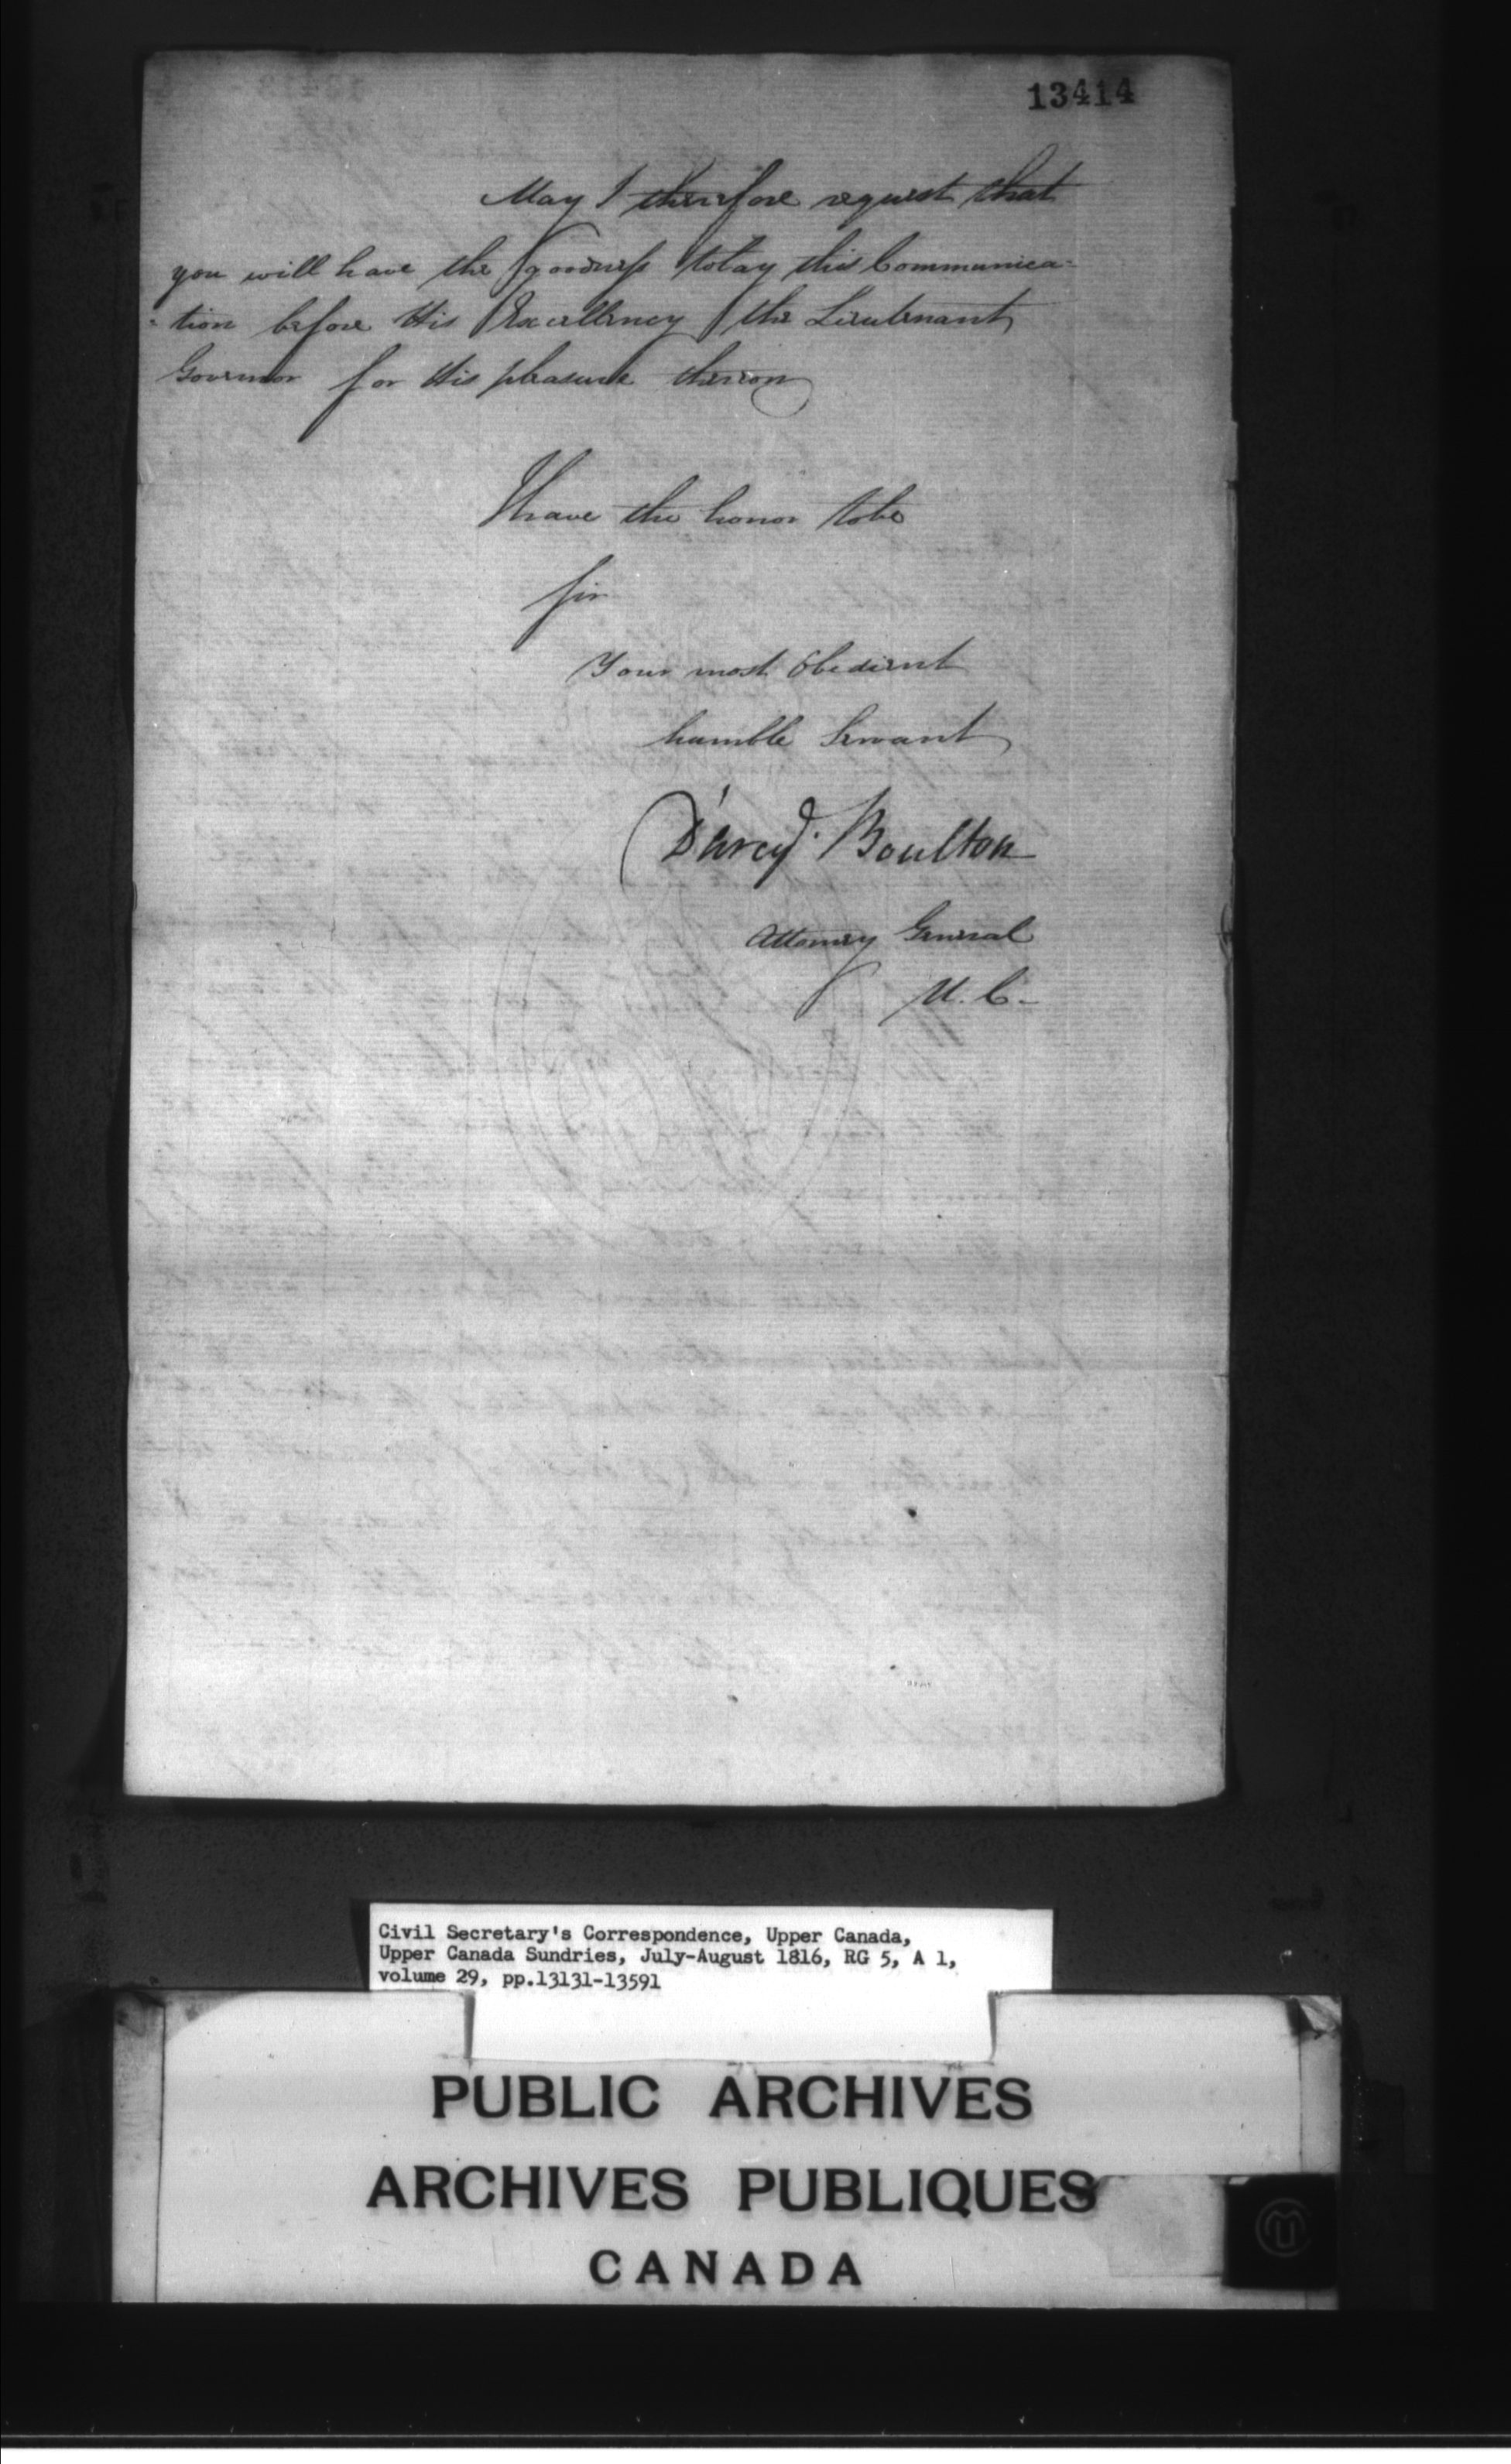 13414
May I therefore request that
you will have the goodness to lay this Communica-
-tion before His Excellency the Lieutenant
Governor for His pleasure thereon
I have the honor to be
Sir
Your most Obedient
humble Servant
D'Arcy Boulton
Attorney General
U. C.-
Civil Secretary's Correspondence, Upper Canada,
Upper Canada Sundries, July-August 1816, RG 5, A 1,
volume 29, pp.13131-13591
PUBLIC ARCHIVES
ARCHIVES PUBLIQUES
CANADA